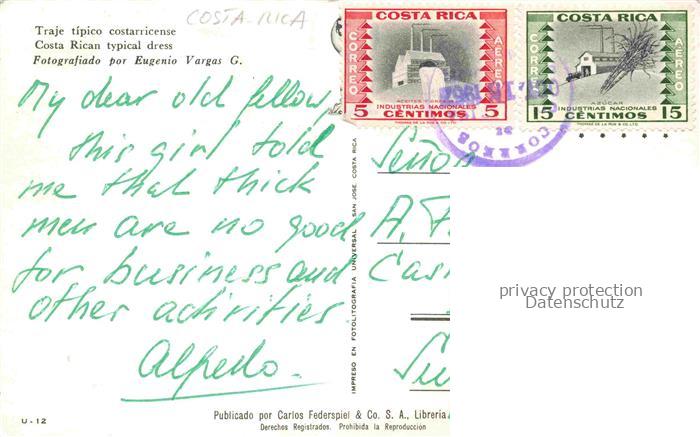 COSTA-RICA
Traje típico costarricense
Costa Rican typical dress
Fotografiado por Eugenio Vargas G.
My dear old fellow
this girl told
me that thick
men are no good
for business and
other activities.
Alfredo.
U-12
COSTA RICA
CORREO
AEREO
ACEITES Y GRASAS
INDUSTRIAS NACIONALES
5 CÉNTIMOS 5
THOMAS DE LA RUE & CO. LTD.
COSTA RICA
CORREO
AEREO
AZUCAR
INDUSTRIAS NACIONALES
15 CÉNTIMOS 15
THOMAS DE LA RUE & CO. LTD.
CORREOS
Señor
A. F
Cas
IMPRESO EN FOTOLITOGRAFIA UNIVERSAL SAN JOSE, COSTA RICA
privacy protection
Datenschutz
Publicado por Carlos Federspiel & Co. S. A., Librería
Derechos Registrados. Prohibida la Reproducción